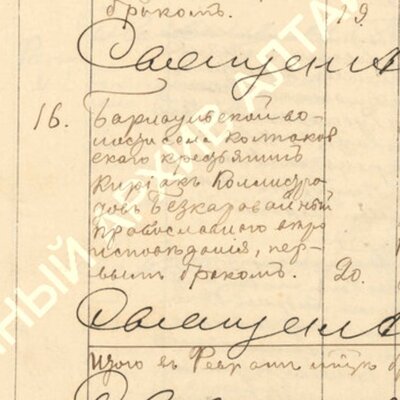 бракомъ. 19.
Священни
16. Барнаульской во-
лости села Колпаков
скаго крестьянинъ
Киріакъ Коллистра
товъ Безкаравайный
православнаго вѣро
исповѣданія, пер-
вымъ бракомъ. 20.
Священни
Итого въ Февралѣ